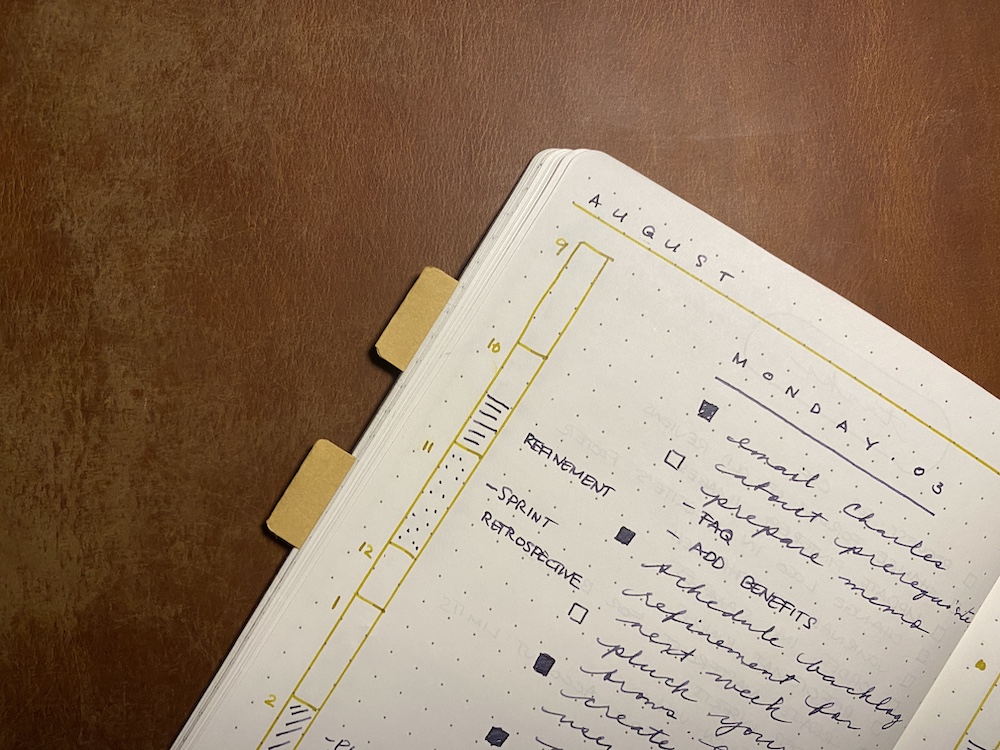 AUGUST
9
10
11
12
1
2
REFINEMENT
-SPRINT
RETROSPECTIVE
MONDAY.03
email Charles
about
prepare prerequisite
memo
- FAQ
- ADD BENEFITS
schedule backlog
refinement for
next week
pluck your
brows
create